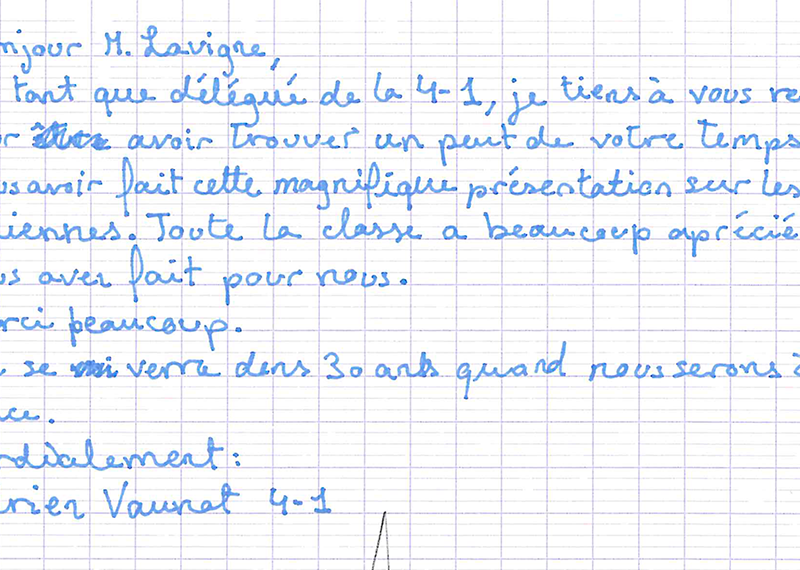 njour M. Lavigne,
tant que délégué de la 4-1, je tiens à vous re
r avoir trouver un peut de votre temps
us avoir fait cette magnifique présentation sur les
iennes. Toute la classe a beaucoup aprécié
us aver fait pour nous.
rci beaucoup.
se verra dans 30 ans quand nous serons
ce.
rdialement:
rien Vaunat 4-1